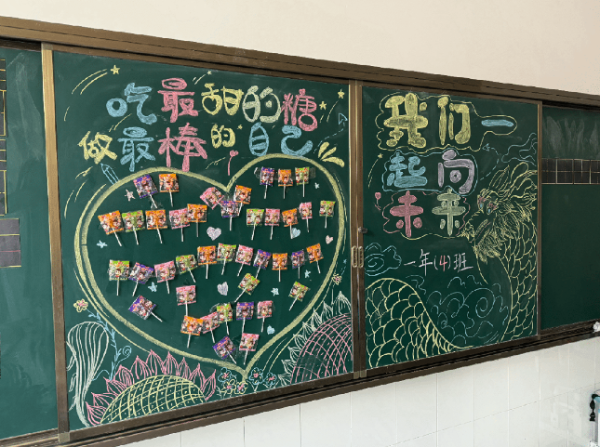 吃最甜的糖
做最棒的自己
我们一
起向
未来
一年(4)班